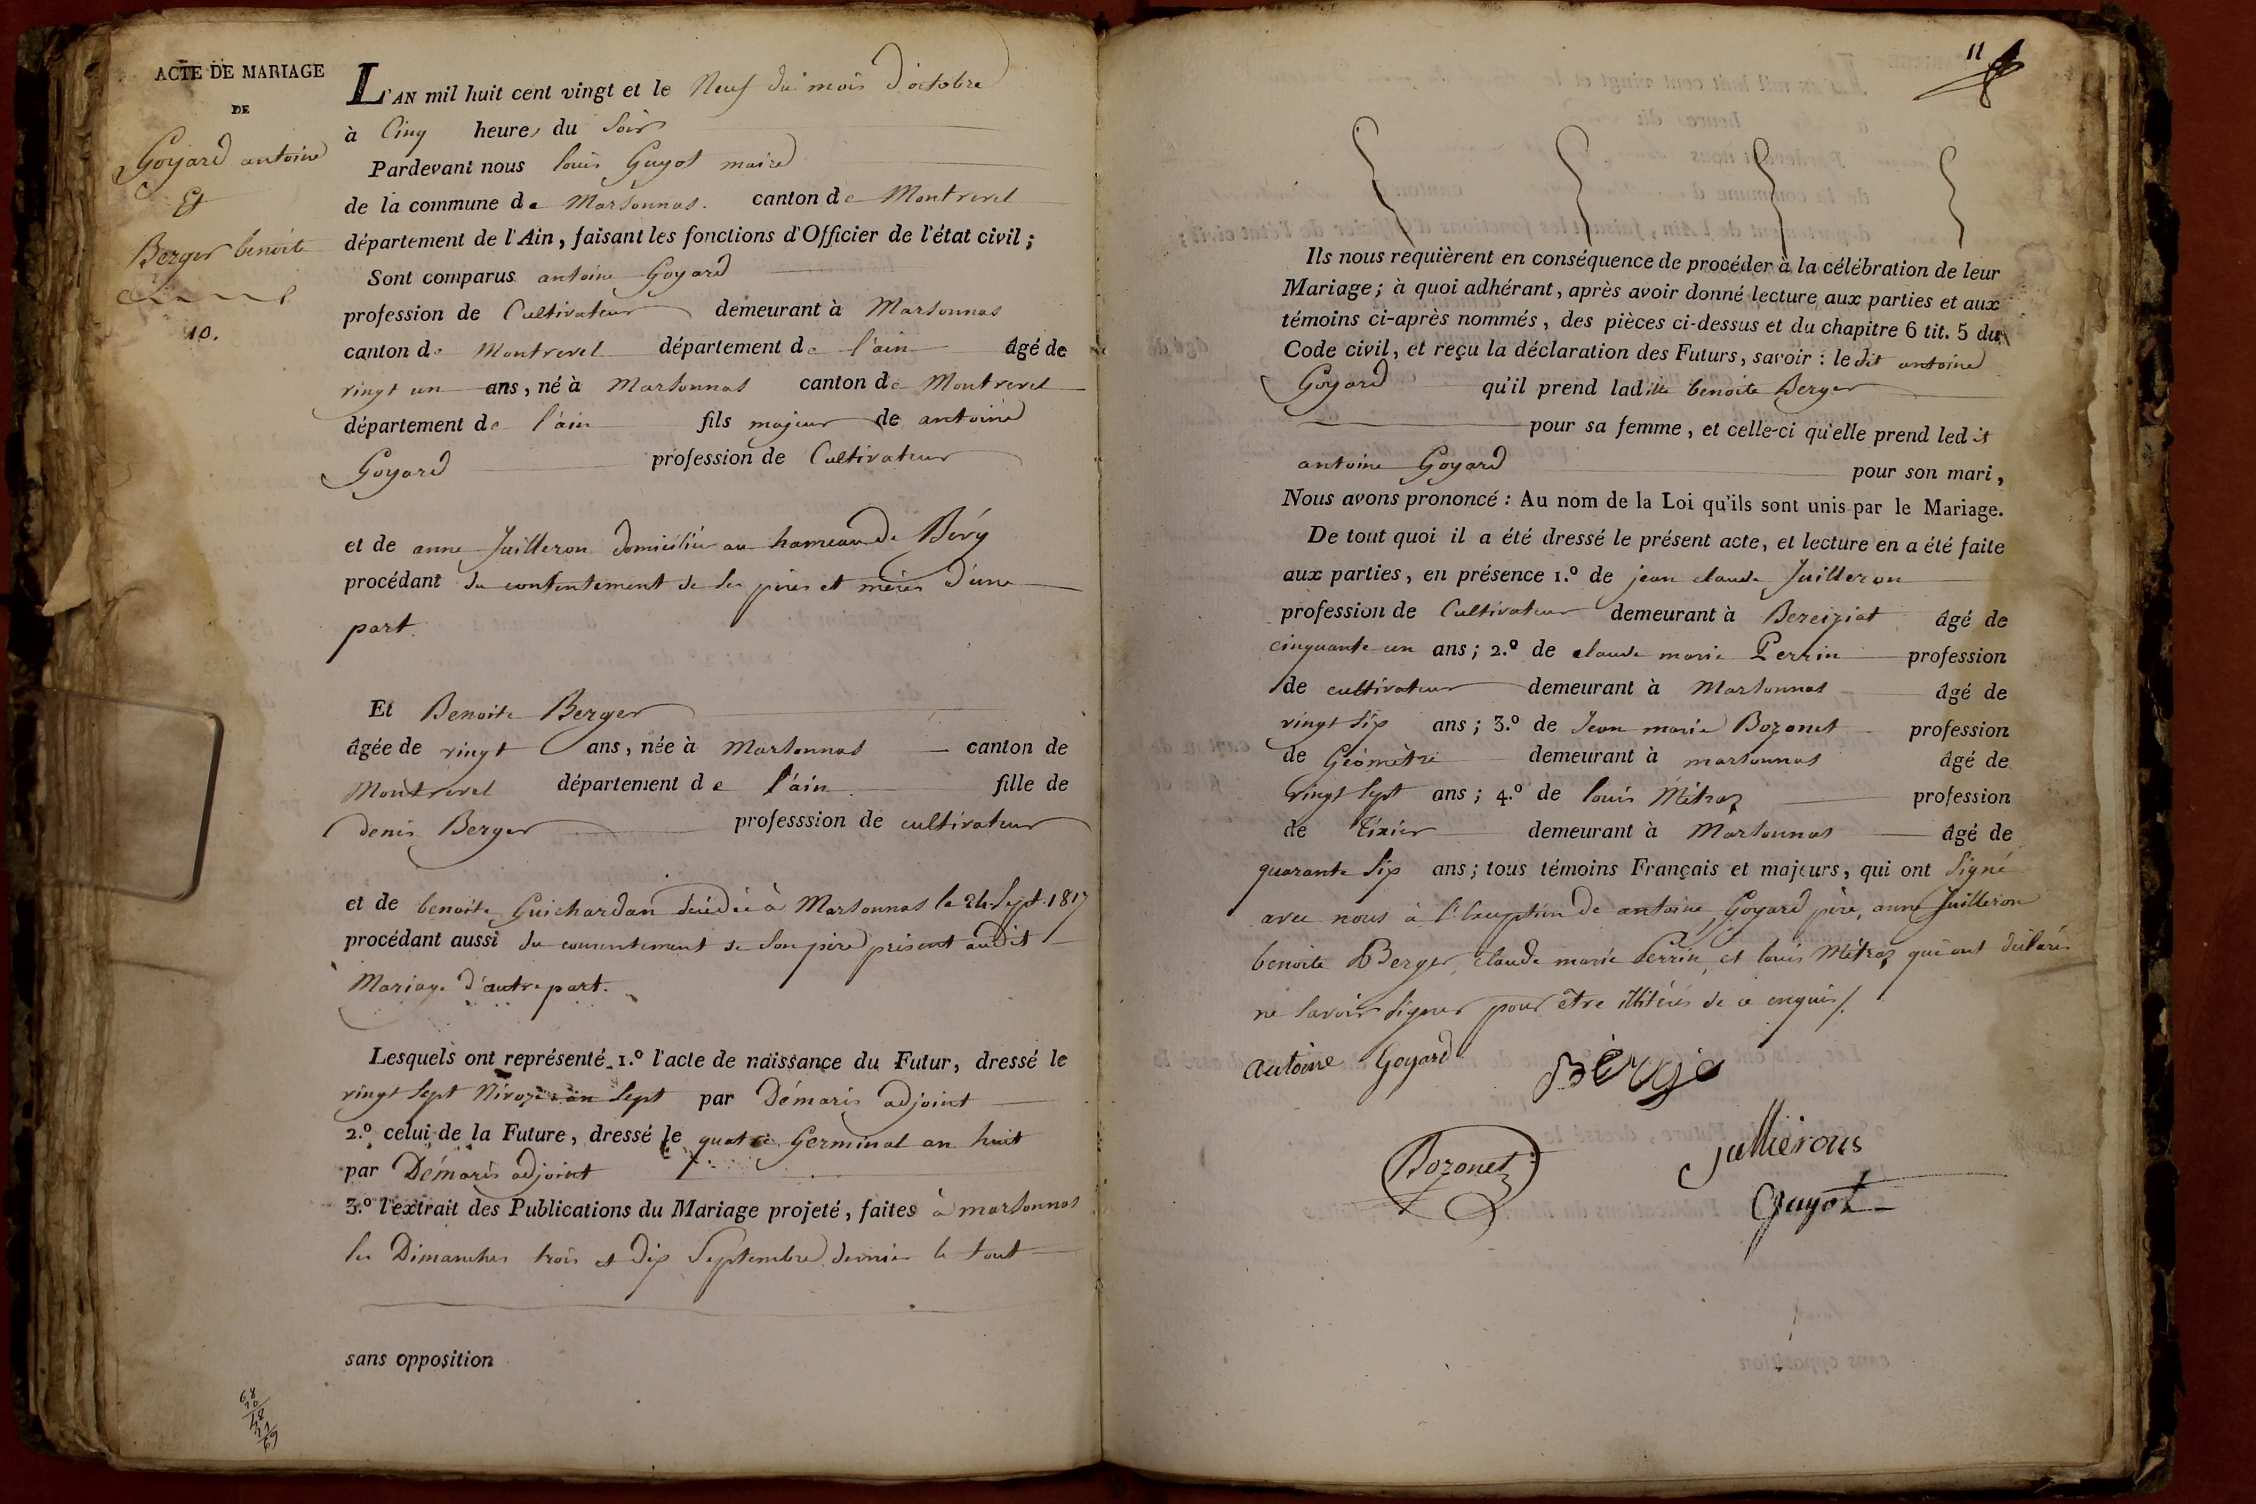 ACTE DE MARIAGE
DE
Goyard antoine
Et
Berger benoite
10.
L'AN mil huit cent vingt et le Neuf du mois d'octobre
à Cinq heures du Soir
Pardevant nous louis Guyot maire
de la commune de Marsonnas. canton de Montrevel
département de l'Ain, faisant les fonctions d'Officier de l'état civil;
Sont comparus antoine Goyard
profession de Cultivateur demeurant à Marsonnas
canton de Montrevel département de l'ain âgé de
vingt un ans, né à Marsonnas canton de Montrevel
département de l'ain fils majeur de antoine
Goyard profession de Cultivateur
et de anne Juilleron domiciliée au hameau de Bévy
procédant du consentement de ses pères et mères d'une
part.
Et Benoite Berger
âgée de vingt ans, née à Marsonnas canton de
Montrevel département de l'ain fille de
denis Berger professsion de cultivateur
et de benoite Guichardan décédée à Marsonnas le 24 Sept. 1817
procédant aussi du consentement de Son père présent audit
Mariage d'autre part.
Lesquels ont représenté 1.º l'acte de naissance du Futur, dressé le
vingt Sept Nivoze an Sept par Démaris adjoint
2.º celui de la Future, dressé le quatre Germinal an huit
par Démaris adjoint
3.º l'extrait des Publications du Mariage projeté, faites à marsonnas
les Dimanches trois et dix Septembre dernier le tout
sans opposition
11
Ils nous requièrent en conséquence de procéder à la célébration de leur
Mariage; à quoi adhérant, après avoir donné lecture aux parties et aux
témoins ci-après nommés, des pièces ci-dessus et du chapitre 6 tit. 5 du
Code civil, et reçu la déclaration des Futurs, savoir : ledit antoine
Goyard qu'il prend ladite benoite Berger
pour sa femme, et celle-ci qu'elle prend ledit
antoine Goyard pour son mari,
Nous avons prononcé : Au nom de la Loi qu'ils sont unis par le Mariage.
De tout quoi il a été dressé le présent acte, et lecture en a été faite
aux parties, en présence 1.º de jean claude Juilleron
profession de Cultivateur demeurant à Bereiziat âgé de
cinquante un ans; 2.º de claude marie Perrin profession
de cultivateur demeurant à Marsonnas âgé de
vingt six ans; 3.º de Jean marie Bozonet profession
de Géomètre demeurant à marsonnas âgé de
vingt Sept ans; 4.º de louis Métraz profession
de tixier demeurant à Marsonnas âgé de
quarante Six ans; tous témoins Français et majeurs, qui ont Signé
avec nous à l'exception de antoine Goyard père, anne Juilleron
benoite Berger, claude marie Perrin, et louis Métraz qui ont déclarés
ne savoir signer pour être illitérés de ce enquis/.
antoine Goyard Berger
Bozonet
Juillerons
Guyot